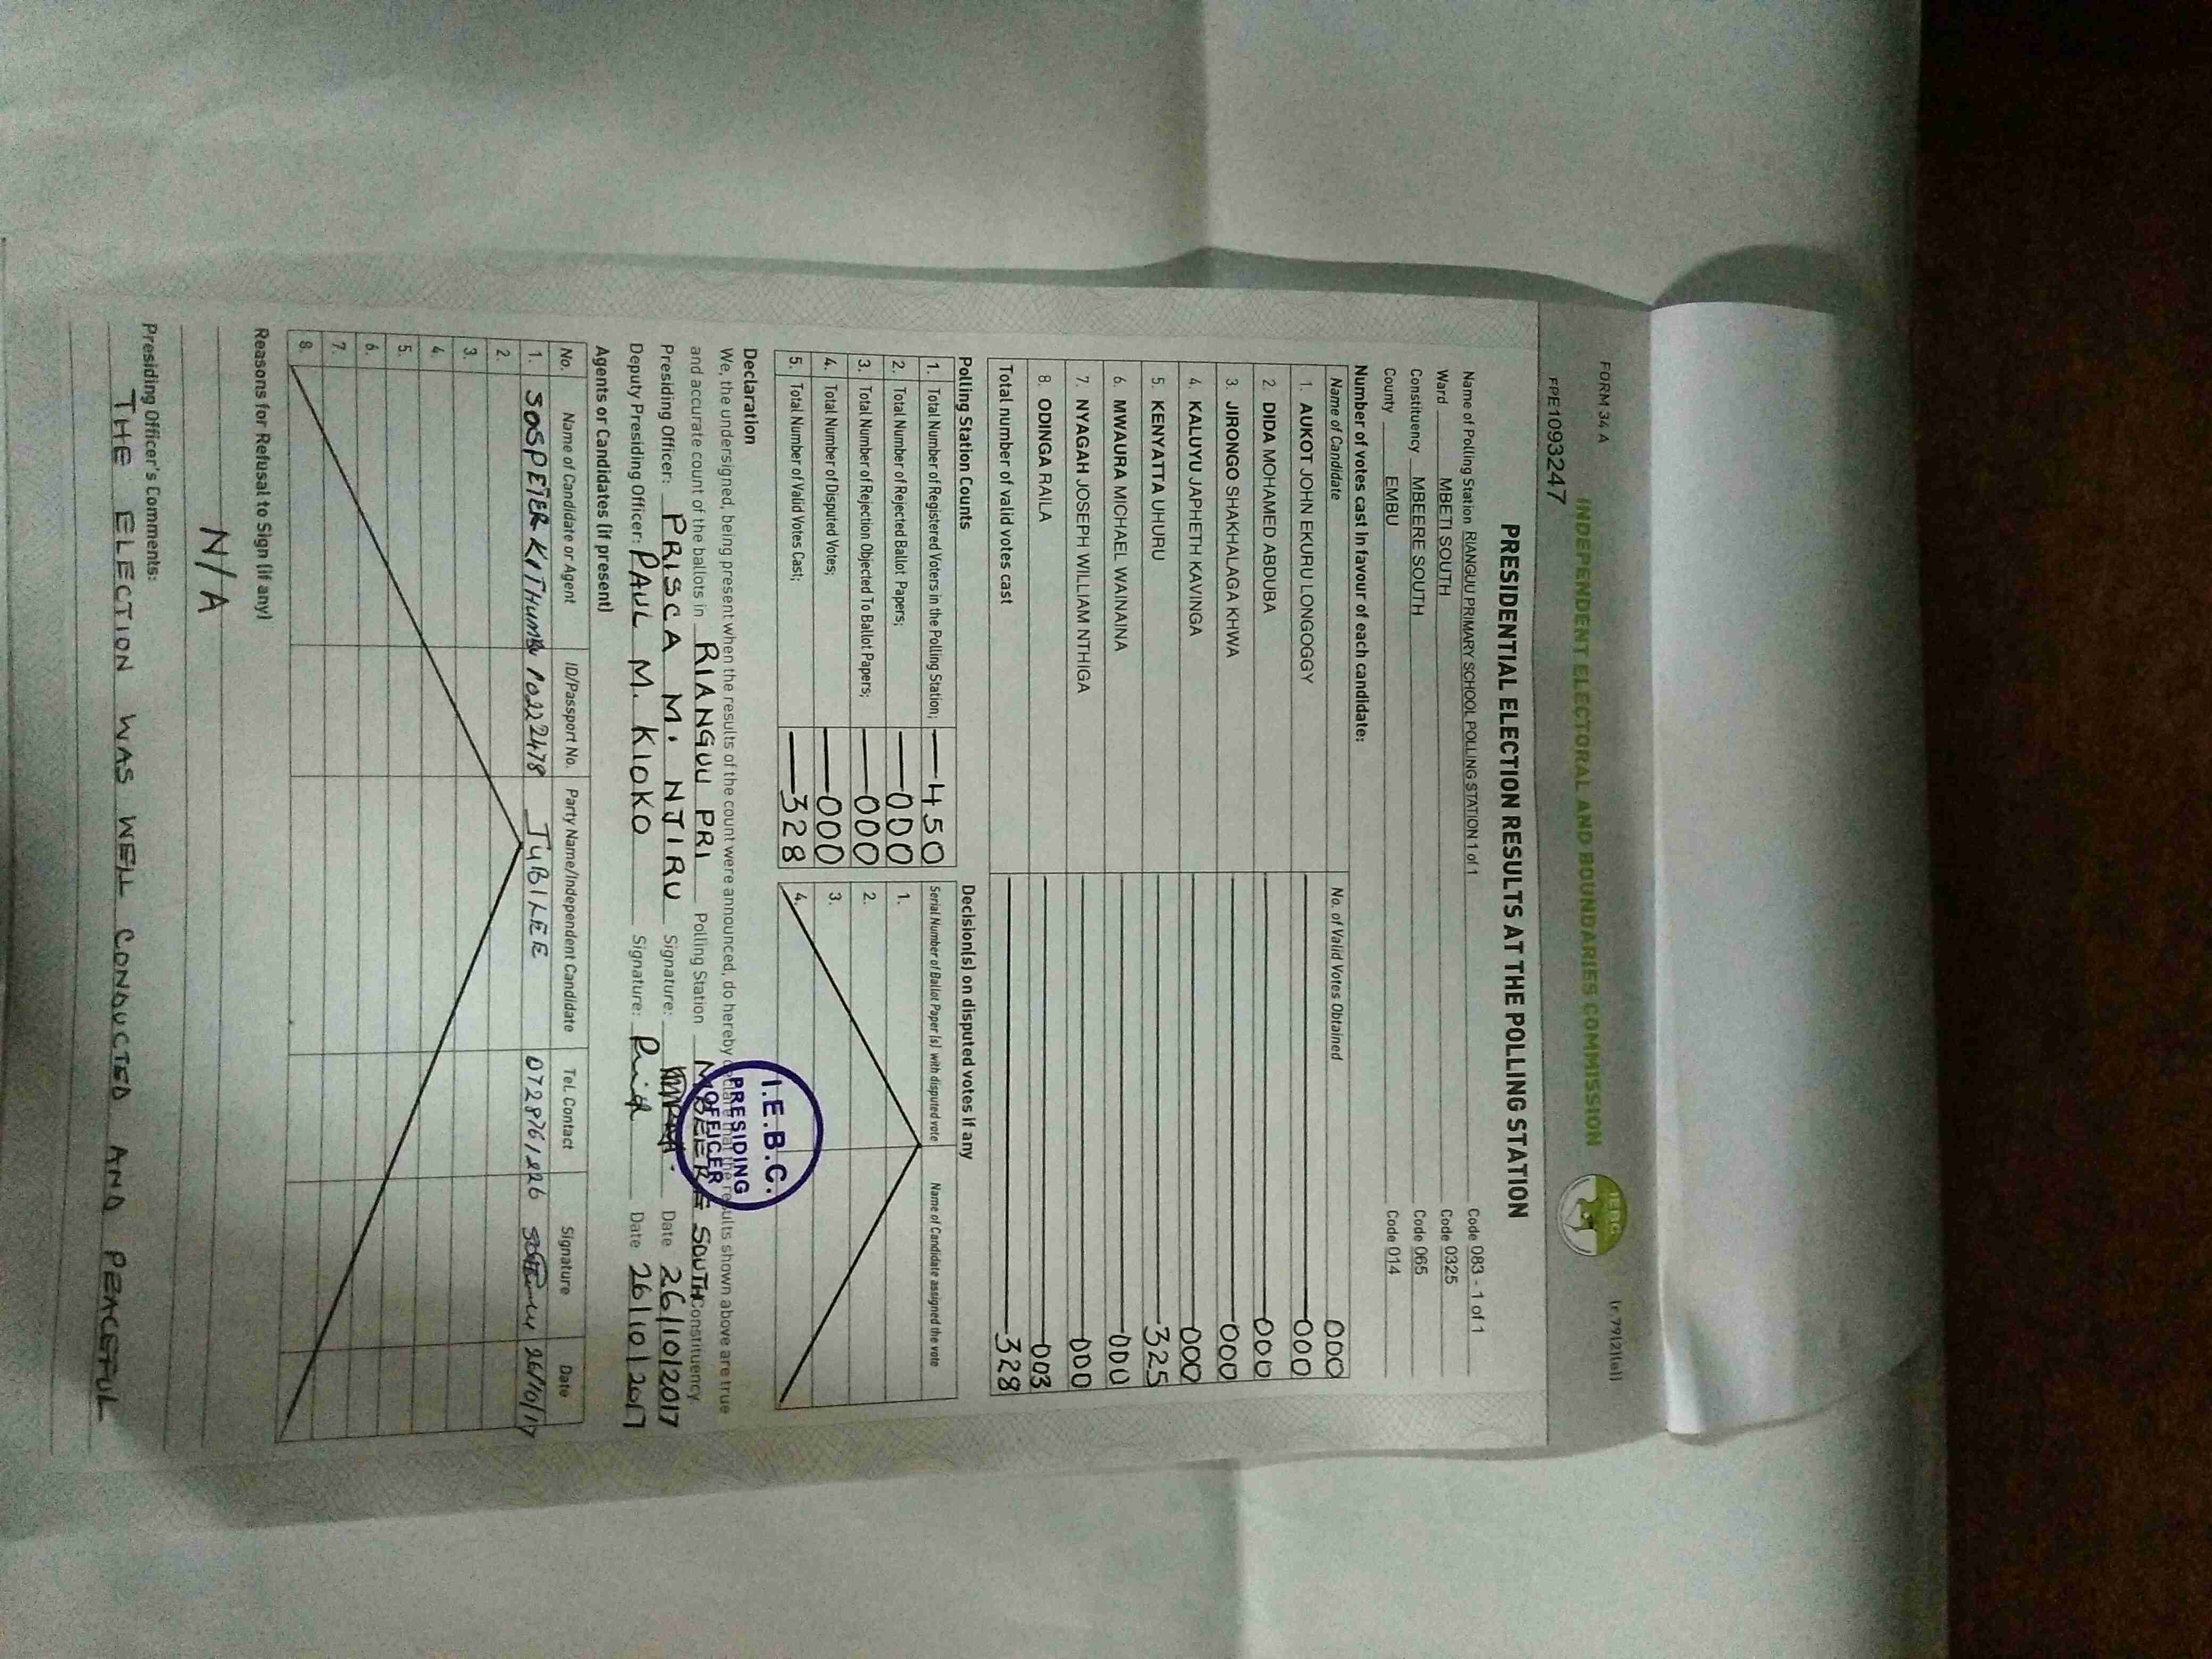 FORM 34 A
(r 79(2)(a))
INDEPENDENT ELECTORAL AND BOUNDARIES COMMISSION
IEBC
FPE1093247
PRESIDENTIAL ELECTION RESULTS AT THE POLLING STATION
Name of Polling Station RIANGUU PRIMARY SCHOOL POLLING STATION 1 of 1 Code 083 - 1 of 1
Ward MBETI SOUTH Code 0325
Constituency MBEERE SOUTH Code 065
County EMBU Code 014
Number of votes cast in favour of each candidate:
Name of Candidate No. of Valid Votes Obtained 000
1. AUKOT JOHN EKURU LONGOGGY 000
2. DIDA MOHAMED ABDUBA 000
3. JIRONGO SHAKHALAGA KHWA 000
4. KALUYU JAPHETH KAVINGA 000
5. KENYATTA UHURU 325
6. MWAURA MICHAEL WAINAINA 000
7. NYAGAH JOSEPH WILLIAM NTHIGA 000
8. ODINGA RAILA 003
Total number of valid votes cast 328
Polling Station Counts
1. Total Number of Registered Voters in the Polling Station; 450
2. Total Number of Rejected Ballot Papers; 000
3. Total Number of Rejection Objected To Ballot Papers; 000
4. Total Number of Disputed Votes; 000
5. Total Number of Valid Votes Cast; 328
Decision(s) on disputed votes if any
Serial Number of Ballot Paper (s) with disputed vote Name of Candidate assigned the vote
1.
2.
3.
4.
Declaration
We, the undersigned, being present when the results of the count were announced, do hereby declare that the results shown above are true
and accurate count of the ballots in RIANGUU PRI Polling Station MBEERE SOUTH Constituency
Presiding Officer: PRISCA M. NJIRU Signature: Date 26/10/2017
Deputy Presiding Officer: PAUL M. KIOKO Signature: Date 26/10/2017
I.E.B.C.
PRESIDING
OFFICER
Agents or Candidates (if present)
No. Name of Candidate or Agent ID/Passport No. Party Name/Independent Candidate Tel. Contact Signature Date
1. SOSPETER KITHUMBI 10222478 JUBILEE 0728761226 26/10/17
2.
3.
4.
5.
6.
7.
8.
Reasons for Refusal to Sign (if any)
N/A
Presiding Officer's Comments:
THE ELECTION WAS WELL CONDUCTED AND PEACEFUL